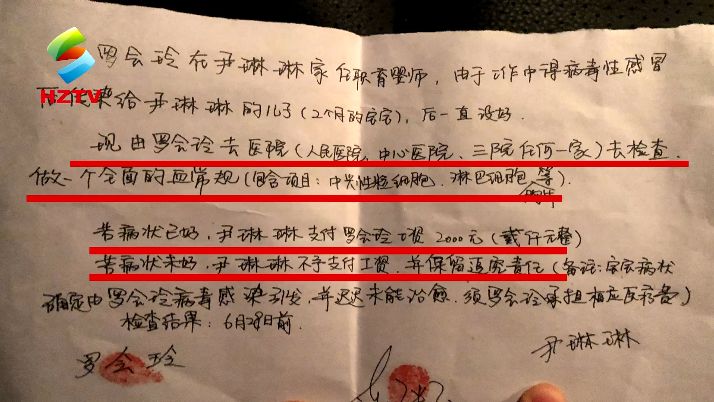 HZTV
罗会玲在尹琳琳家任职育婴师，由于工作中得病毒性感冒
而传染给尹琳琳的儿子（2个月的宝宝），后一直没好．
现由罗会玲去医院（人民医院、中心医院、三院任何一家）去检查．
做一个全面的血常规（包含项目：中央性粒细胞．淋巴细胞 等）．
若病状已好，尹琳琳支付罗会玲工资2000元（贰仟元整）
若病状未好，尹琳琳不予支付工资，并保留追究责任（备注：宝宝病状
确定由罗会玲病毒感染引发，并迟迟未能治愈．须罗会玲承担相应医疗费）
检查结果：6月28日前．
罗会玲
尹琳琳